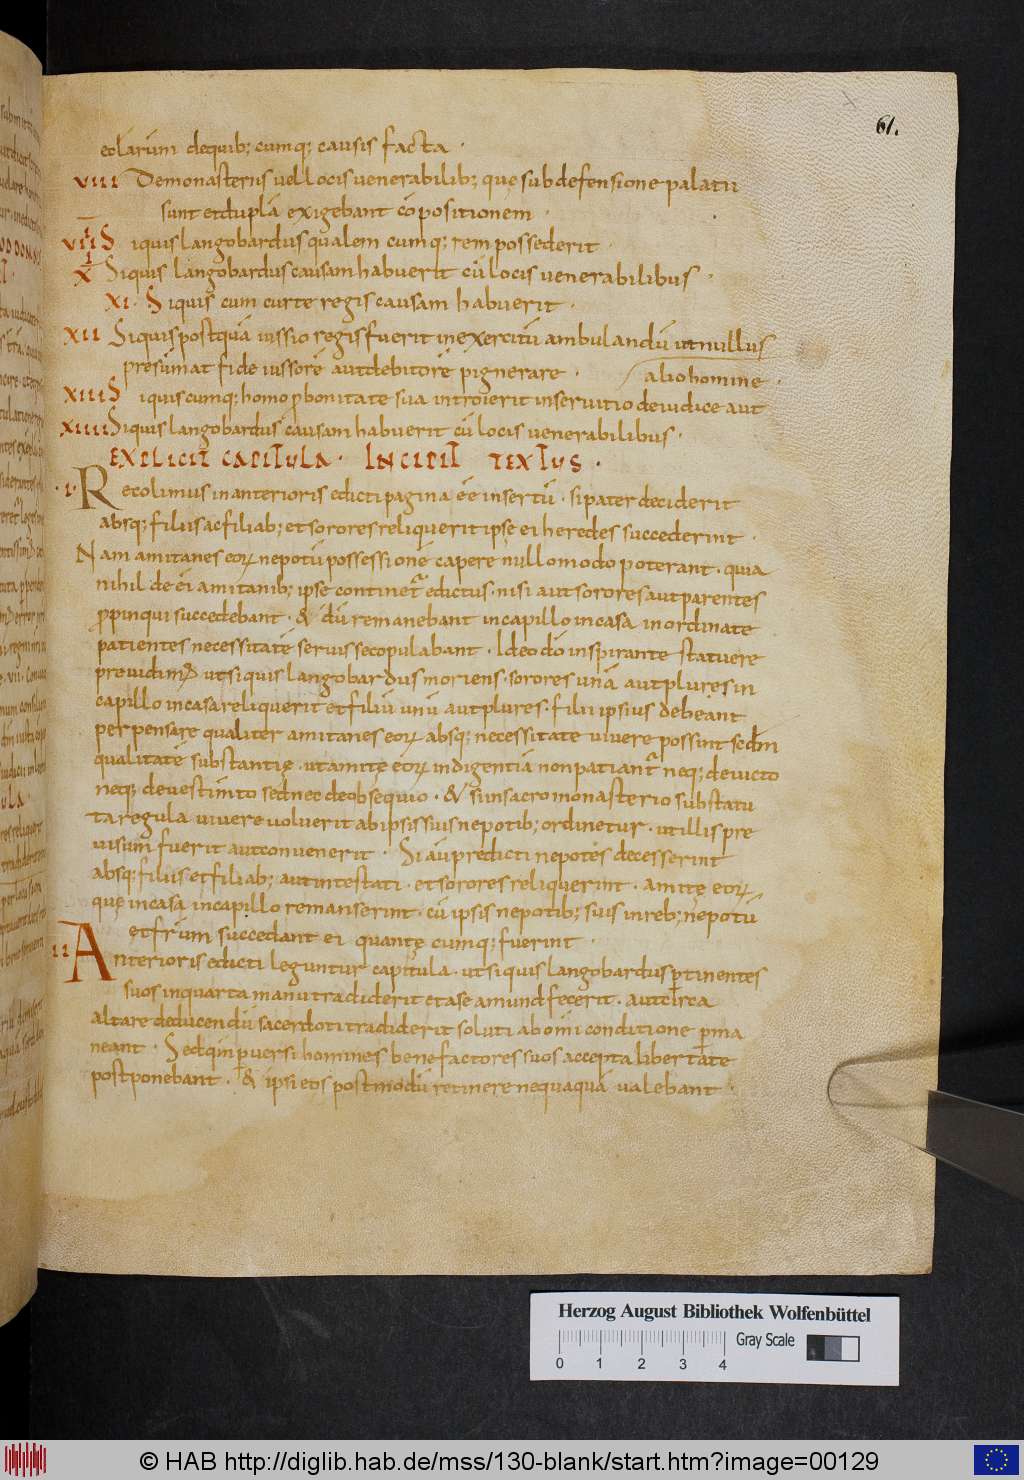 61.
eclarum dequib; cumq; causis facta ·
VIII Demonasteriis vel locis venerabilib; quę sub defensione palatii
sunt et duplā exigebant cōpositionem ·
VIIII Siquis langobardus qualem cumq; rem possederit ·
X Siquis langobardus causam habuerit cū locis venerabilibus ·
XI · Siquis cum curte regis causam habuerit ·
XII Siquis postquā iussio regis fuerit in exercitū ambulandū ut nullus
presumat fideiussorē aut debitorē pignerare · alio homine ·
XIII Siquiscumq; homo p bonitate sua introierit in servitio de iudice aut
XIIII Siquis langobardus causam habuerit cū locis venerabilibus ·
EXPLICIT CAPITULA · INCIPIT TEXTUS ·
· I · Recolimus in anterioris edicti pagina eē insertū · si pater deciderit
absq; filiis ac filiab; et sorores reliquerit ipse ei heredes succederint ·
Nam amitanes eoꝝ nepotū possessionē capere nullo modo poterant · quia
nihil de ei amitanib; ipse continetr edictus · nisi aut sorores aut parentes
ppinqui succedebant · & dū remanebant in capillo in casa inordinate
patientes necessitatē servis se copulabant · Ideo dō inspirante statuere
previdimꝰ ut siquis langobardus moriens · sorores unā aut plures in
capillo in casa reliquerit et filiū unū aut plures · filii ipsius debeant
perpensare qualiter amitanes eoꝝ absq; necessitate vivere possint scdm
qualitatē substantię · ut amitę eoꝝ indigentiā non patiantr neq; de victo
neq; de vestimto sed nec de obsequio · & si in sacro monasterio sub statu
ta regula vivere voluerit ab ipsis suis nepotib; ordinetur · ut illis pre
visum fuerit aut convenerit · Si aū predicti nepotes decesserint
absq; filiis et filiab; aut intestati · et sorores reliquerint · amitę eoꝝ
quę in casa in capillo remanserint · cū ipsis nepotib; suis in reb; nepotū
et frīum succedant ei quantę cumq; fuerint ·
II Anterioris edicti leguntur capitula · ut siquis langobardus ptinentes
suos in quarta manu tradiderit et a se amund fecerit · aut circa
altare deducendū sacerdoti tradiderit soluti ab omi conditione pma
neant · Sed qm pversi homines benefactores suos accepta libertate
postponebant · & ipsi eos postmodū retinere nequaquā valebant ·
Herzog August Bibliothek Wolfenbüttel
Gray Scale
0 1 2 3 4
© HAB http://diglib.hab.de/mss/130-blank/start.htm?image=00129